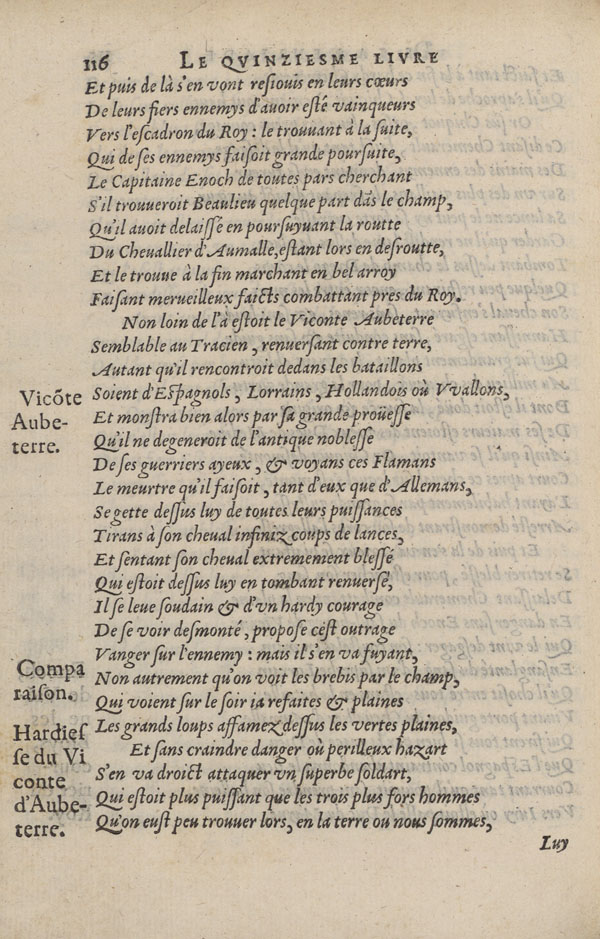 116 LE QVINZIESME LIVRE
Et puis de là s'en vont resiouis en leurs cœurs
De leurs fiers ennemys d'auoir esté vainqueurs
Vers l'escadron du Roy : le trouuant à la suite,
Qui de ses ennemys faisoit grande poursuite,
Le Capitaine Enoch de toutes pars cherchant
S'il trouueroit Beaulieu quelque part dãs le champ,
Qu'il auoit delaissé en poursuyuant la routte
Du Cheuallier d'Aumalle, estant lors en desroutte,
Et le trouue à la fin marchant en bel arroy
Faisant merueilleux faicts combattant pres du Roy.
Non loin de l'à estoit le Viconte Aubeterre
Semblable au Tracien, renuersant contre terre,
Autant qu'il rencontroit dedans les bataillons
Vicõte
Aube-
terre.
Soient d'Espagnols, Lorrains, Hollandois où Vvallons,
Et monstra bien alors par sa grande proüesse
Qu'il ne degeneroit de l'antique noblesse
De ses guerriers ayeux, & voyans ces Flamans
Le meurtre qu'il faisoit, tant d'eux que d'Allemans,
Se gette dessus luy de toutes leurs puissances
Tirans à son cheual infiniz coups de lances,
Et sentant son cheual extremement blessé
Qui estoit dessus luy en tombant renuersé,
Il se leue soudain & d'vn hardy courage
De se voir desmonté, propose cest outrage
Vanger sur l'ennemy : mais il s'en va fuyant,
Compa
raison.
Non autrement qu'on voit les brebis par le champ,
Qui voient sur le soir ia refaites & plaines
Les grands loups affamez dessus les vertes plaines,
Hardies
se du Vi
conte
d'Aube-
terre.
Et sans craindre danger où perilleux hazart
S'en va droict attaquer vn superbe soldart,
Qui estoit plus puissant que les trois plus fors hommes
Qu'on eust peu trouuer lors, en la terre ou nous sommes,
Luy